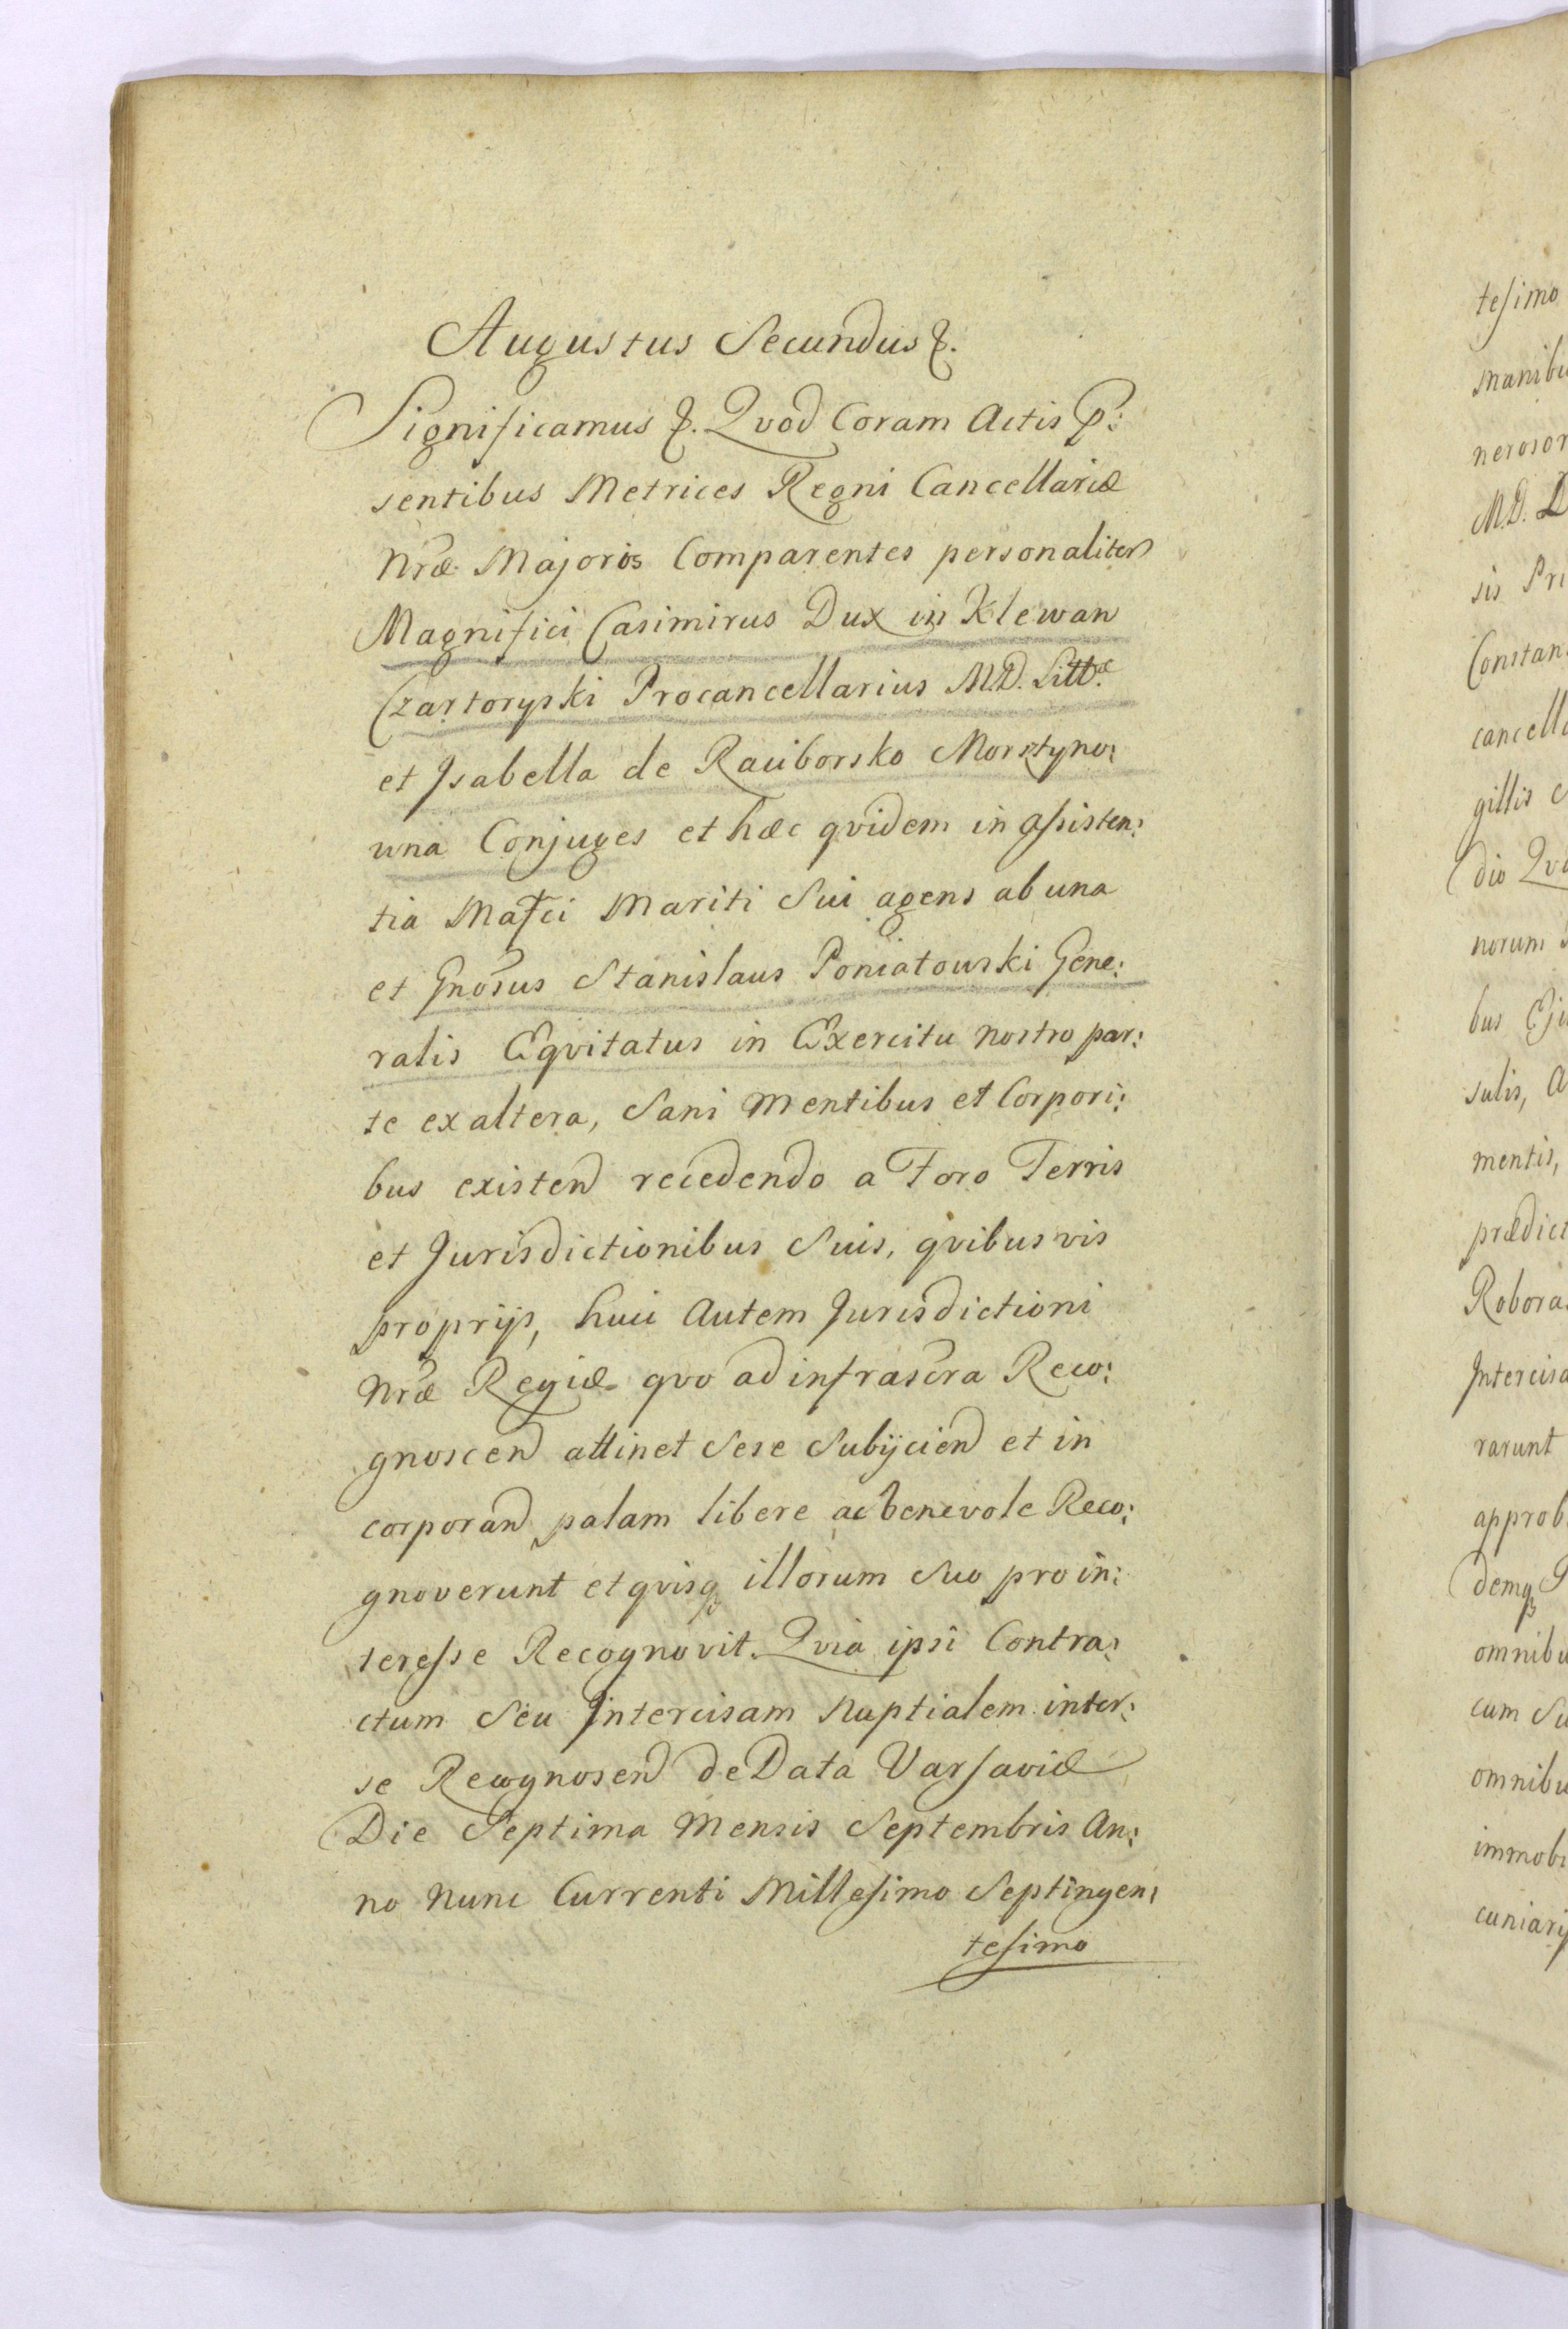 Augustus Secundus &.
Significamus &. Qvod Coram Actis P:
sentibus Metrices Regni Cancellariæ
Nræ Majoris Comparentes personaliter
Magnifici Casimirus Dux in Klewan
Czartoryski Procancellarius M.D. Littæ
et Isabella de Raciborsko Morsztyno:
una Conjuges et hæc qvidem in assisten:
tia Mafci Mariti Sui agens ab una
et Gnosus Stanislaus Poniatowski Gene:
ralis Eqvitatus in Exercitu nostro par:
te ex altera, Sani mentibus et Corpori:
bus existend recedendo a Foro Terris
et Jurisdictionibus Suis, qvibusvis
proprijs, huic Autem Jurisdictioni
Nræ Regiæ qvo ad infrascra Reco:
gnoscend attinet Sese Subijciend et in
corporand palam libere ac benevole Reco:
gnoverunt et qvisq illorum Suo pro in:
teresse Recognovit. Qvia ipsi Contra:
ctum Seu Intercisam Nuptialem inter:
se Recognoscend de Data Varsaviæ
Die Septima Mensis Septembris An:
no nunc Currenti Millesimo Septingen:
tesimo
tesimo
manibu
nerosor
M.D. L
sis Pri
Constan
cancella
gillis
dio Qvo
norum
bus Eju
sulis, a
mentis,
prædict
Robora
Intercisa
rarunt
approb
demq
omnibu
cum Su
omnibu
immobi
cuniarij